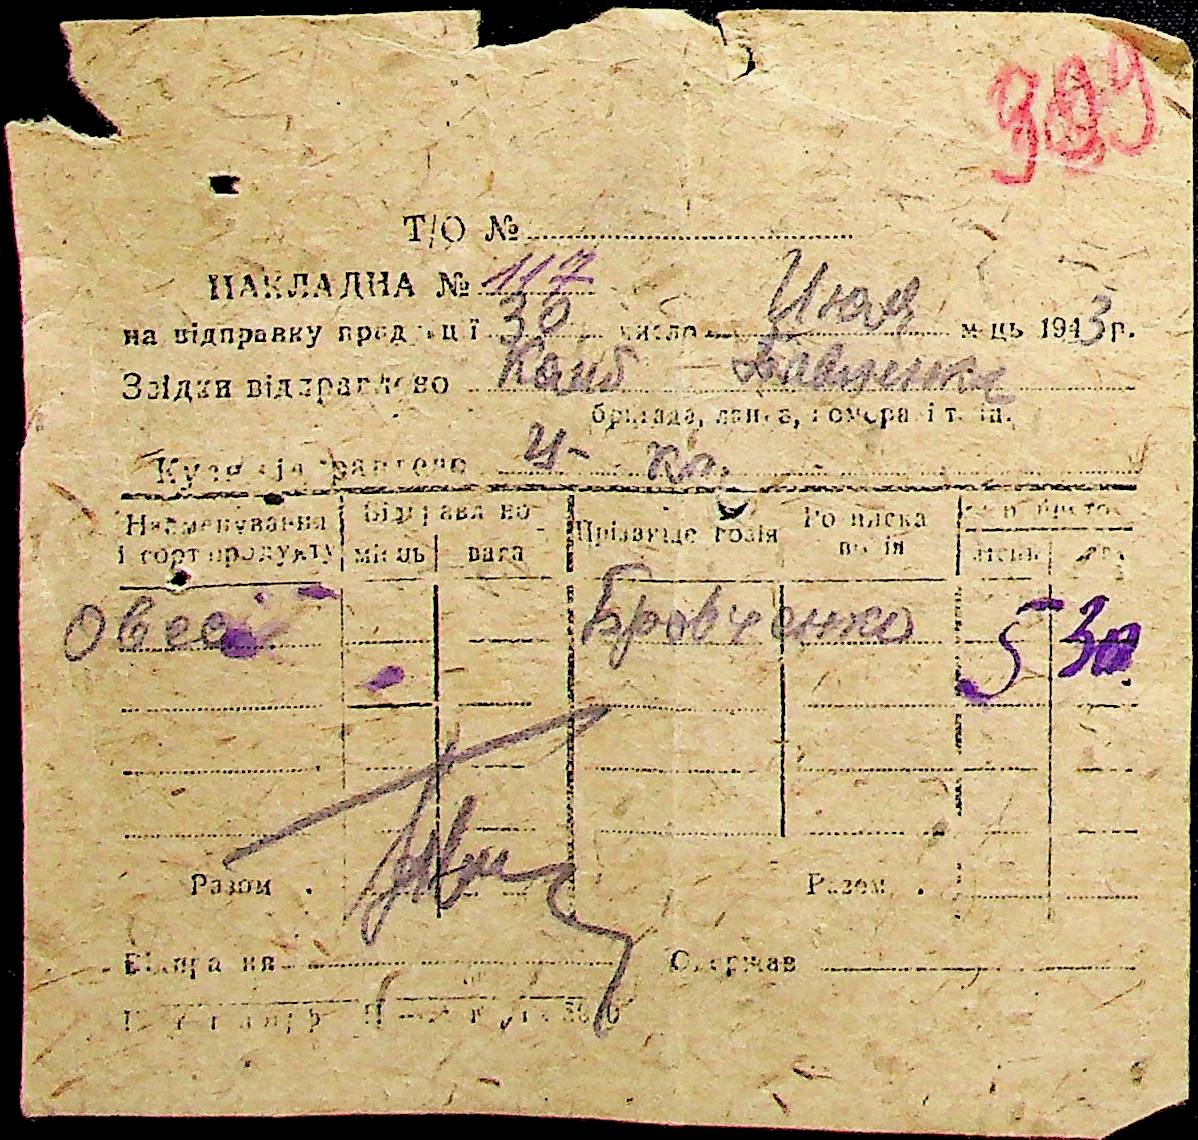 399
Т/О №
НАКЛАДНА № 117
на відправку продукції 30 число Июля м-ць 1943 р.
Звідки відправлено Комб
бригада, ланка, номера і т. ін.
Куди відправлено ц- кл.
Найменування і сорт продукту Відправлено місць вага Прізвище возія Розписка возія
Овес Бровченко 5 30
Разом . Разом .
Відправив Одержав